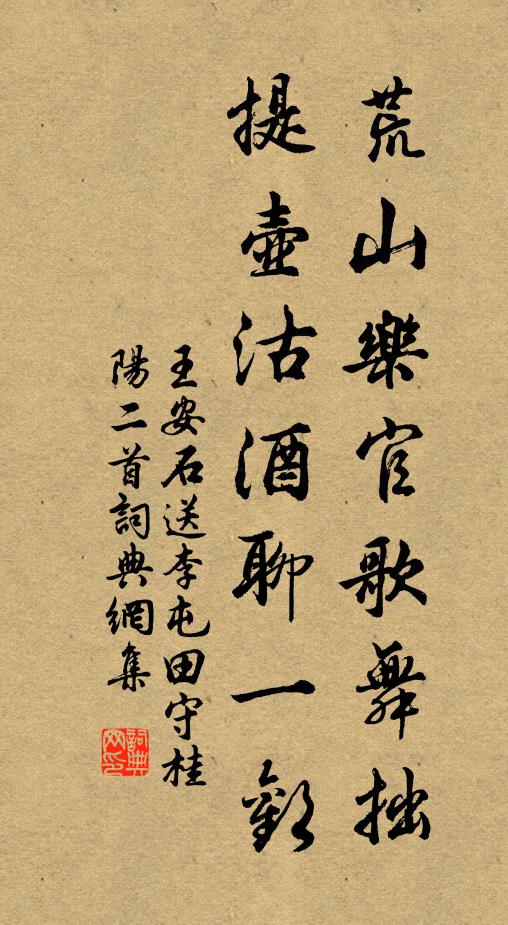 荒山樂官歌舞拙
提壺沽酒聊一勸
王安石送李屯田守桂
陽二首詞典網集
詞典網印